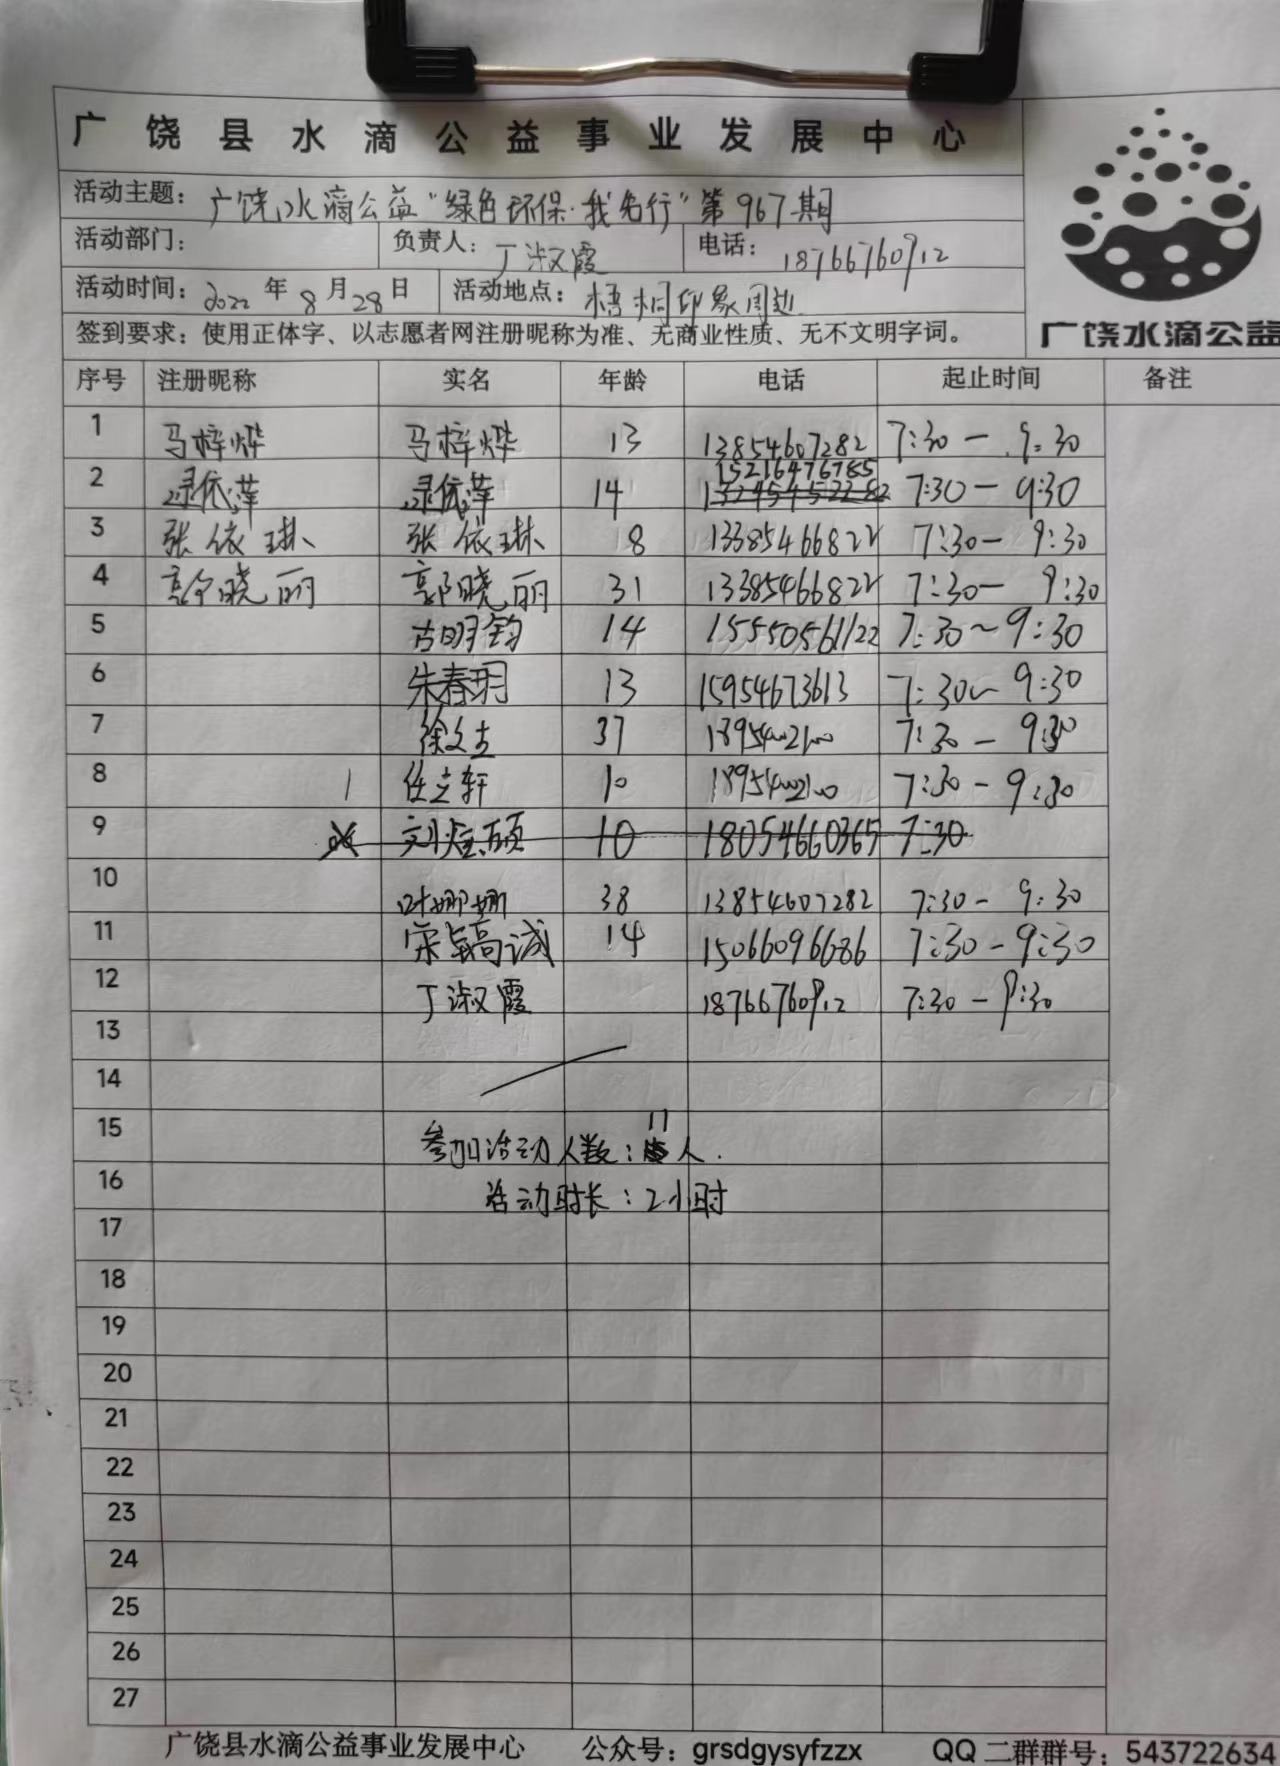 广饶县水滴公益事业发展中心
活动主题：广饶水滴公益“绿色环保·我先行”第967期
活动部门： 负责人：丁淑霞 电话：18766760912
活动时间：2022年8月28日 活动地点：梧桐印象周边
签到要求：使用正体字、以志愿者网注册昵称为准、无商业性质、无不文明字词。
广饶水滴公益
序号 注册昵称 实名 年龄 电话 起止时间 备注
1 马梓烨 马梓烨 13 13854607282 7:30-9:30
15216476785
2 依萍 依萍 14 7:30-9:30
3 张依琳 张依琳 8 13385466822 7:30-9:30
4 郭晓丽 郭晓丽 31 13385466822 7:30-9:30
5 古明钧 14 15550561122 7:30~9:30
6 朱春玥 13 15954673613 7:30~9:30
7 徐文吉 37 18954002100 7:30-9:30
8 任立轩 10 18954002100 7:30-9:30
9 刘 硕 10 18054660365 7:30
10 叶娜娜 38 13854607282 7:30-9:30
11 宋 诚 14 15066096686 7:30-9:30
12 丁淑霞 18766760912 7:30-9:30
13
14
15 参加活动人数：11人.
16 活动时长：2小时
17
18
19
20
21
22
23
24
25
26
27
广饶县水滴公益事业发展中心 公众号：grsdgysyfzzx QQ二群群号：543722634